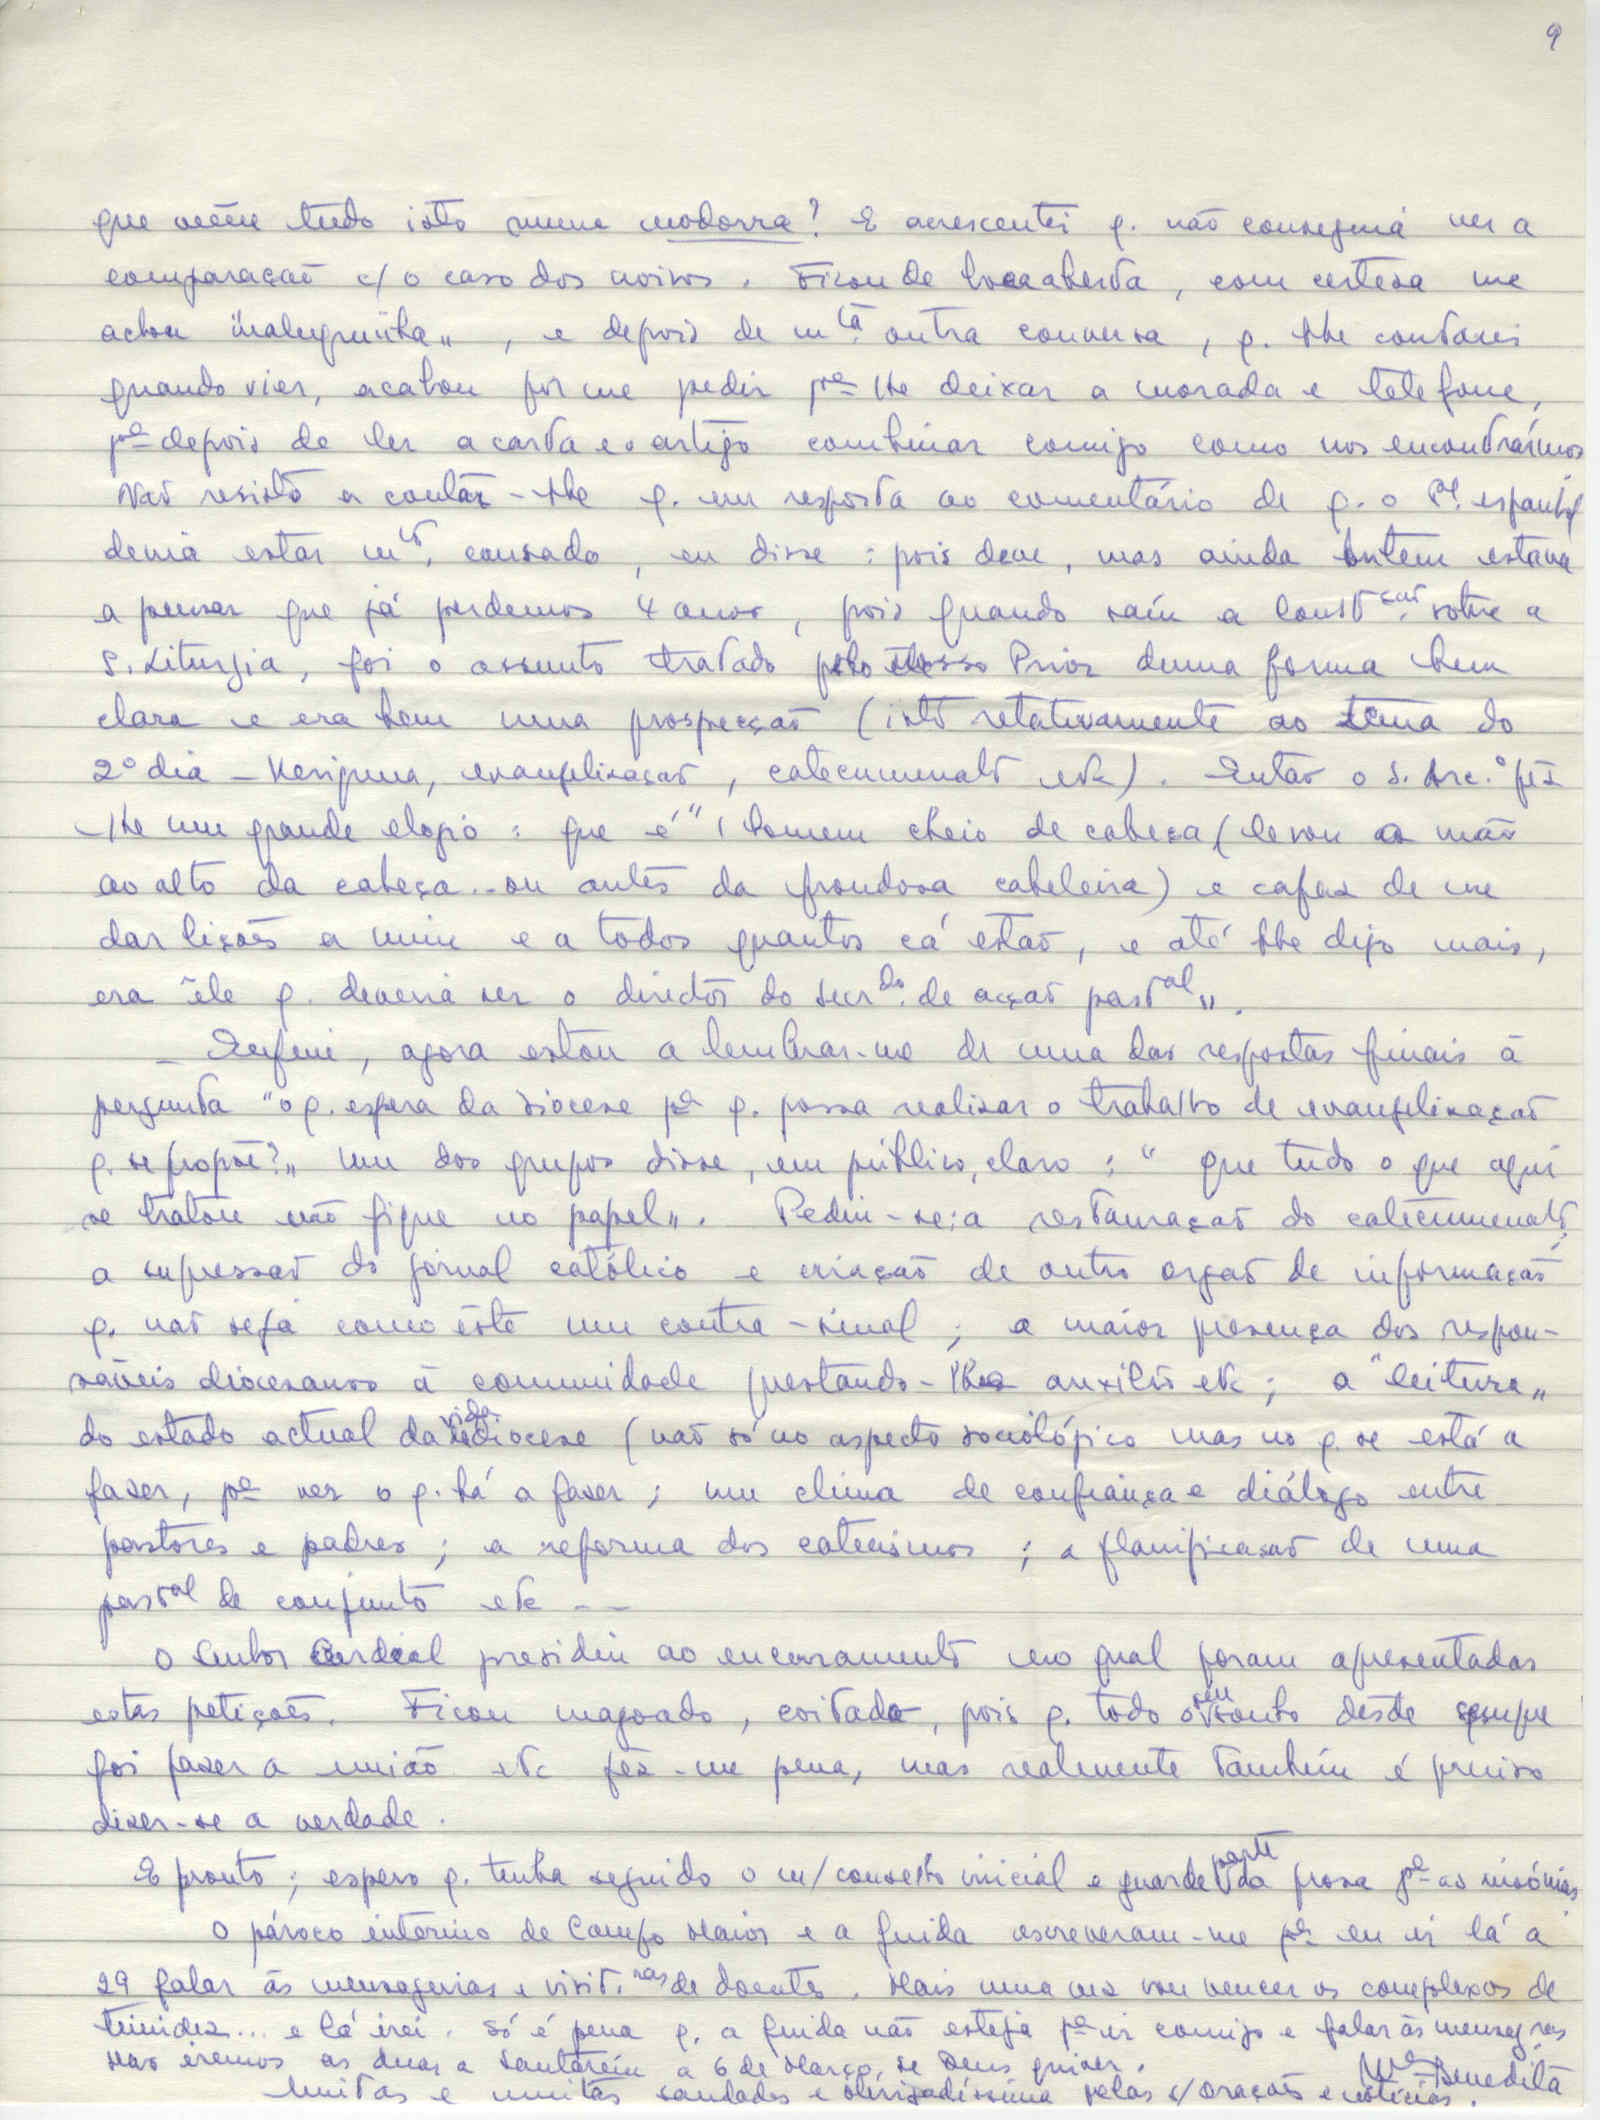 9
que vêem tudo isto numa modorra? E acrescentei q. não conseguia ver a
comparação c/ o caso dos noivos. Ficou de boca aberta, com certeza me
achou "malugruinha", e depois de mtª outra conversa, q. lhe contarei
quando vier, acabou por me pedir pª lhe deixar a morada e telefone,
pª depois de ler a carta e o artigo combinar comigo como nos encontrarímos
Não resisto a contar-lhe q. em resposta ao comentário de q. o Pe. espanhol
devia estar mtº. cansado, eu disse: pois deve, mas ainda ontem estava
a pensar que já perdemos 4 anos, pois quando saíu a Constção. sobre a
S. Liturgia, foi o assunto tratado pelo nosso Prior duma forma bem
clara e era bem uma prospecção (isto relativamente ao tema do
2º dia - Kerigma, evangelização, catecumenato etc). Então o S. Arc.º fêz
-lhe um grande elogio: que é "homem cheio de cabeça (levou a mão
ao alto da cabeça.. ou antes da frondosa cabeleira) e capaz de me
dar lições a mim e a todos quantos cá estão, e até lhe digo mais,
era êle q. deveria ser o director do Secrdo. de acção pastal".
- Enfim, agora estou a lembrar-me de uma das respostas finais à
pergunta "o q. espera da diocese pª q. possa realizar o trabalho de evangelização
q. se propõe?" Um dos grupos disse, em público, claro: "que tudo o que aqui
se tratou não fique no papel". Pediu-se: a restauração do catecumenato,
a supressão do jornal católico e criação de outro orgão de informação
q. não seja como êste um contra-sinal; a maior presença dos respon-
sáveis diocesanos à comunidade prestando-lhe auxílio etc; a "leitura"
do estado actual da vida diocese (não só no aspecto sociológico mas no q. se está a
fazer, pª ver o q. há a fazer; um clima de confiança e diálogo entre
pastores e padres; a reforma dos catecismos; a planificação de uma
pastal de conjunto etc - -
O Senhor Cardeal presidiu ao encerramento no qual foram apresentadas
estas petições. Ficou magoado, coitado, pois q. todo o seu sonho desde sempre
foi fazer a união etc fêz-me pena, mas realmente também é preciso
dizer-se a verdade.
E pronto; espero q. tenha seguido o m/ conselho inicial e guarde parte da prosa pª as insónias
O pároco interino de Campo Maior e a Guida escreveram-me pª eu ir lá a
29 falar às mensageiras e visit.ras de doentes. Mais uma vez vou vencer os complexos de
timidez... e lá irei. Só é pena q. a Guida não esteja pª ir comigo e falar às mensagras
Mas iremos as duas a Santarém a 6 de Março, se Deus quiser.
Mª Benedita
Muitas e muitas saudades e obrigadíssima pelas s/ orações e notícias.